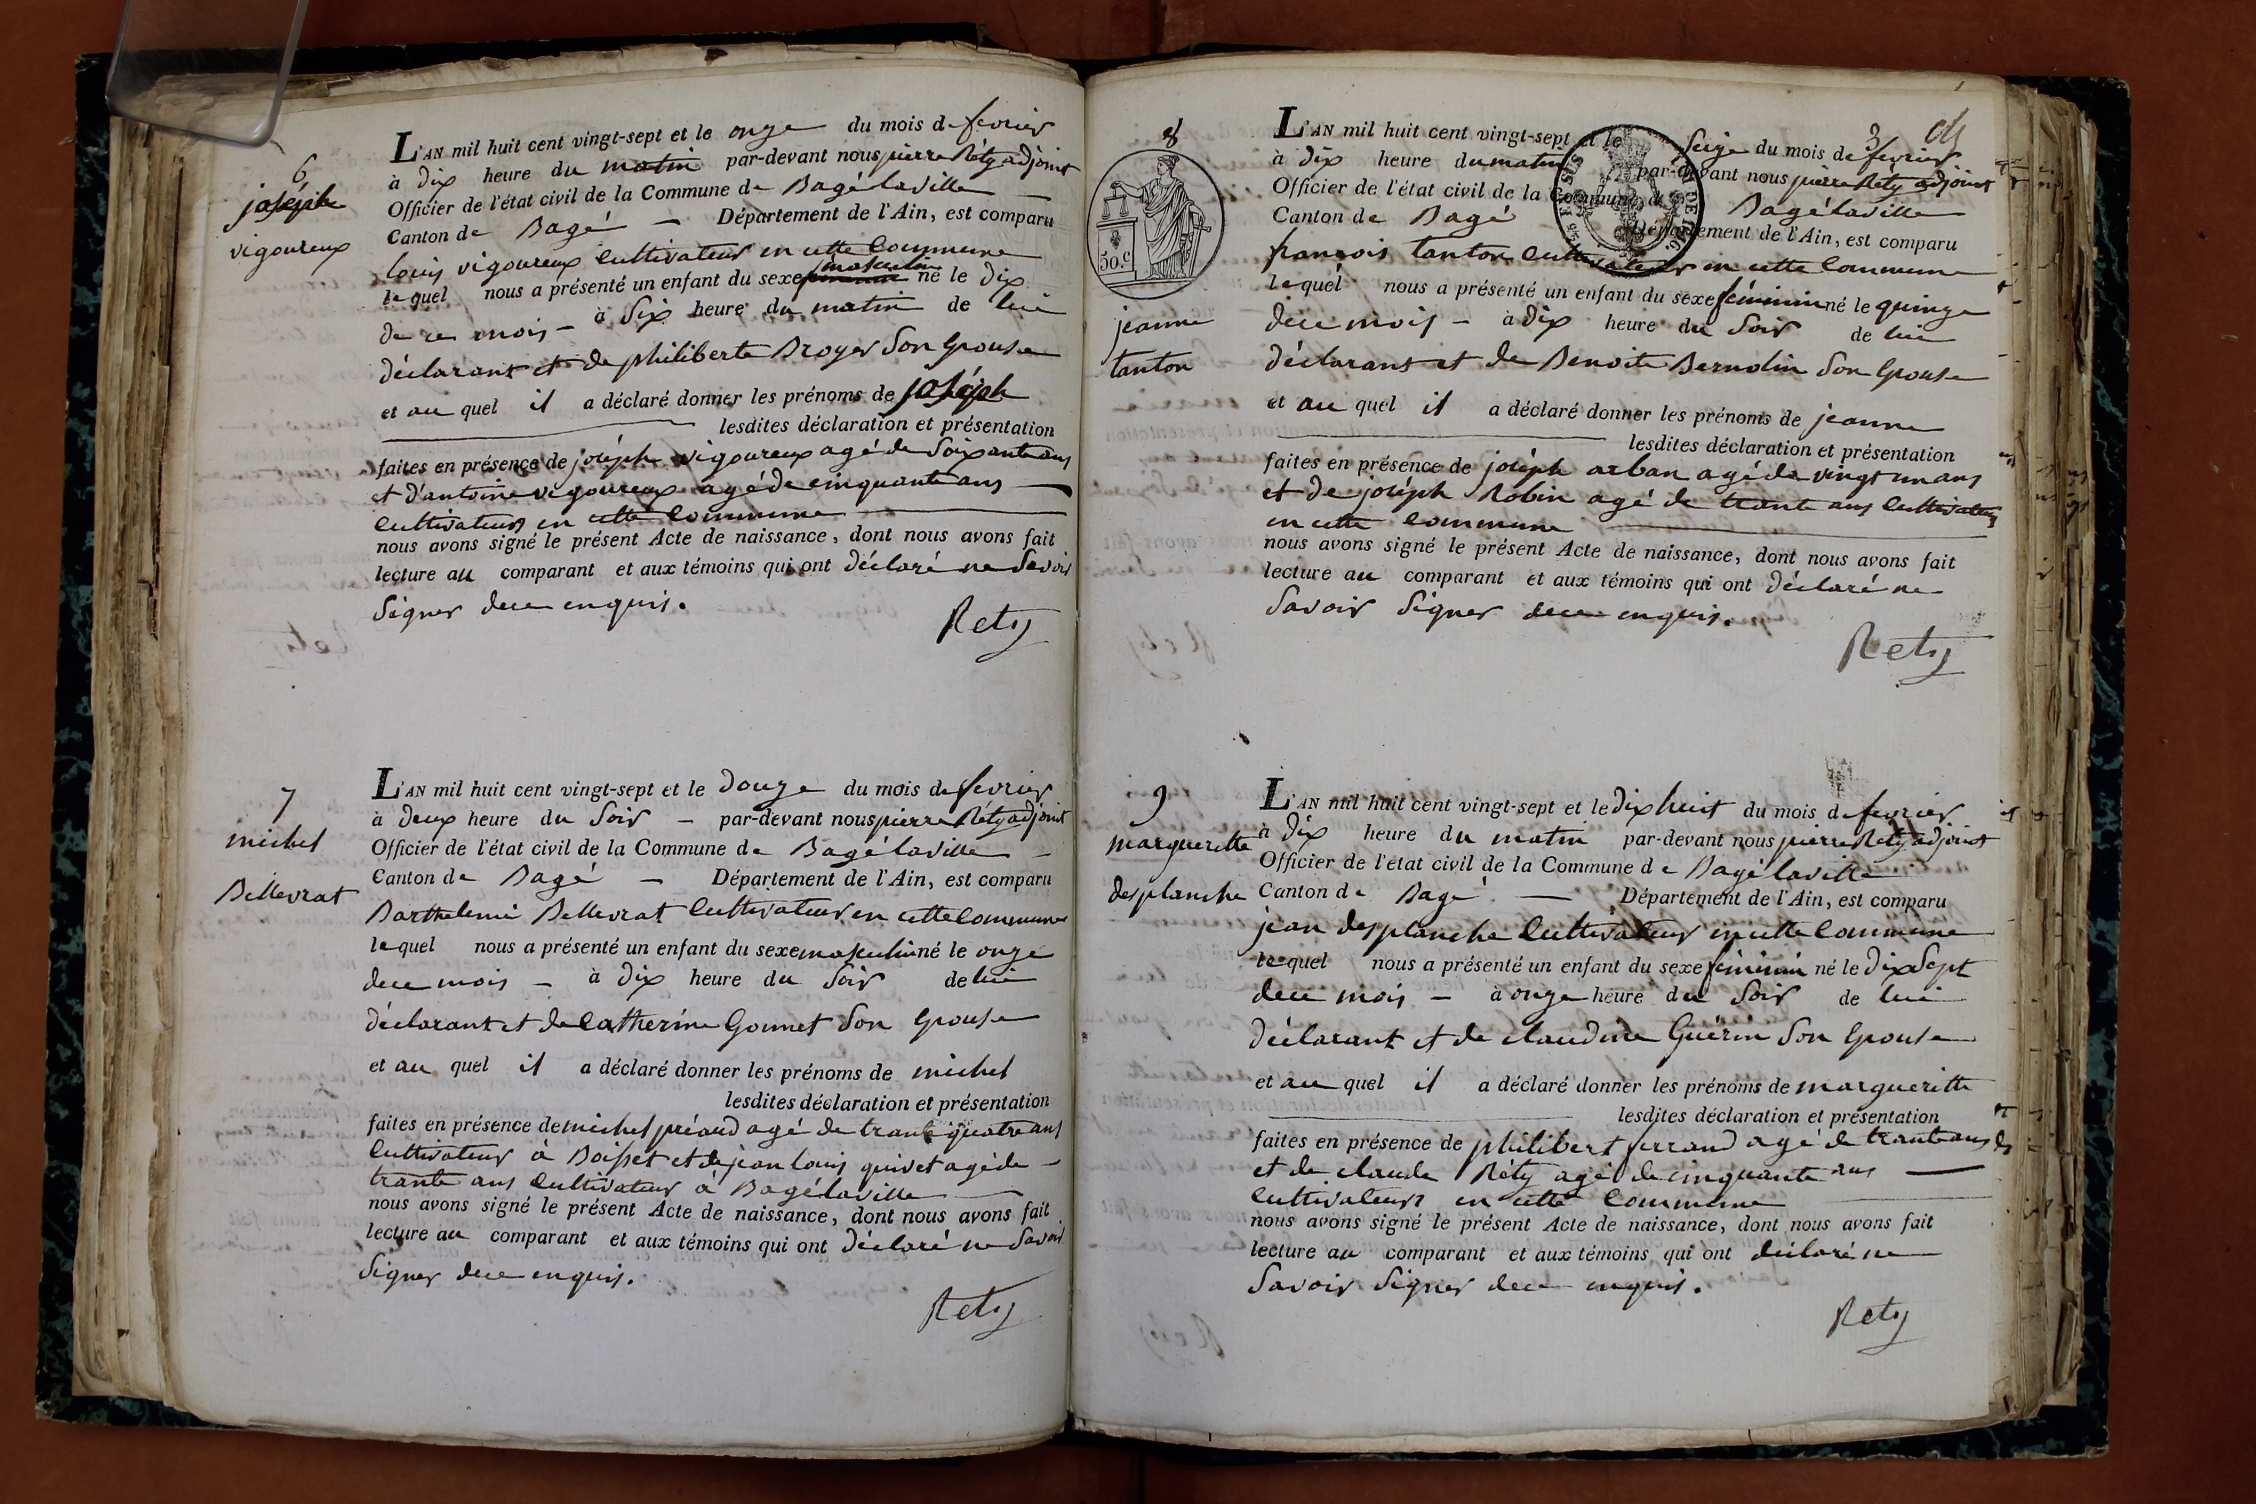 6
joséph
vigoureux
L'AN mil huit cent vingt-sept et le onze du mois de fevrier
à dix heure du matin par-devant nous pierre Réty adjoint
Officier de l'état civil de la Commune de Bagé laville
Canton de Bagé Département de l'Ain, est comparu
louis vigoureux Cultivateur en cette Commune
le quel nous a présenté un enfant du sexe masculin né le dix
de ce mois à Six heure du matin de lui
déclarant et de philiberte Broyer Son Epouse
et au quel il a déclaré donner les prénoms de joséph
lesdites déclaration et présentation
faites en présence de joséph vigoureux agé de Soixante ans
et d'antoine vigoureux agé de cinquante ans
Cultivateurs en cette Commune
nous avons signé le présent Acte de naissance, dont nous avons fait
lecture au comparant et aux témoins qui ont déclaré ne Savoir
Signer de ce enquis.
Rety
7
michel
Bellevrat
L'AN mil huit cent vingt-sept et le douze du mois de fevrier
à deux heure du Soir par-devant nous pierre Réty adjoint
Officier de l'état civil de la Commune de Bagé laville
Canton de Bagé Département de l'Ain, est comparu
Barthelemi Bellevrat Cultivateur en cette Commune
le quel nous a présenté un enfant du sexe masculin né le onze
de ce mois à dix heure du Soir de lui
déclarant et de Catherine Gonnet Son Epouse
et au quel il a déclaré donner les prénoms de michel
lesdites déclaration et présentation
faites en présence de michel préaud agé de trante quatre ans
Cultivateur à Boisset et de jean louis quivet agé de
trante ans Cultivateur à Bagé laville
nous avons signé le présent Acte de naissance, dont nous avons fait
lecture au comparant et aux témoins qui ont déclaré ne Savoir
Signer de ce enquis.
Rety
3
8
50.c
jeanne
tanton
L'AN mil huit cent vingt-sept et le Seize du mois de fevrier
à dix heure du matin par-devant nous pierre Réty adjoint
Officier de l'état civil de la Commune de Bagé laville
Canton de Bagé Département de l'Ain, est comparu
françois tanton Cultivateur en cette Commune
le quel nous a présenté un enfant du sexe féminin né le quinze
de ce mois à dix heure du Soir de lui
déclarant et de Benoite Bernolin Son Epouse
et au quel il a déclaré donner les prénoms de jeanne
lesdites déclaration et présentation
faites en présence de joséph arban agé de vingt un ans
et de joséph Robin agé de trante ans Cultivateurs
en cette Commune
nous avons signé le présent Acte de naissance, dont nous avons fait
lecture au comparant et aux témoins qui ont déclaré ne
Savoir Signer de ce enquis.
Rety
9
margueritte
desplanche
L'AN mil huit cent vingt-sept et le dix huit du mois de fevrier
à dix heure du matin par-devant nous pierre Réty adjoint
Officier de l'état civil de la Commune de Bagé laville
Canton de Bagé Département de l'Ain, est comparu
jean desplanche Cultivateur en cette Commune
le quel nous a présenté un enfant du sexe féminin né le dix Sept
de ce mois à onze heure du Soir de lui
déclarant et de claudine Guérin Son Epouse
et au quel il a déclaré donner les prénoms de margueritte
lesdites déclaration et présentation
faites en présence de philibert ferrand agé de trante ans
et de claude Réty agé de cinquante ans
Cultivateurs en cette Commune
nous avons signé le présent Acte de naissance, dont nous avons fait
lecture au comparant et aux témoins qui ont déclaré ne
Savoir Signer de ce enquis.
Rety